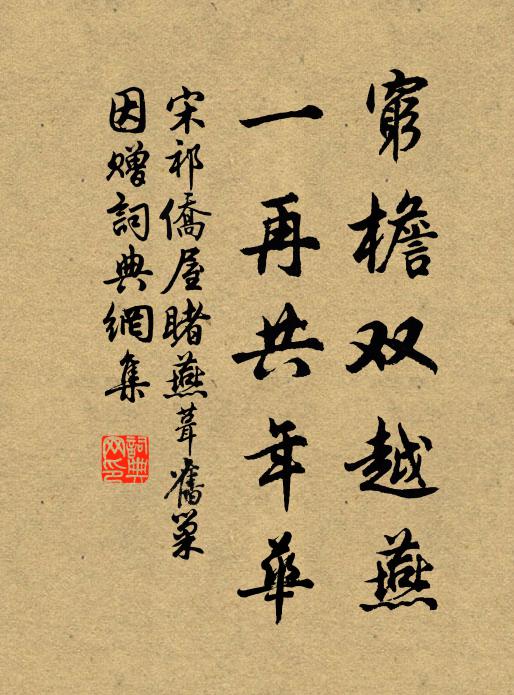 窮檐双越燕
一再共年華
宋祁僑屋睹燕葺舊巢
因贈詞典網集
詞典网印